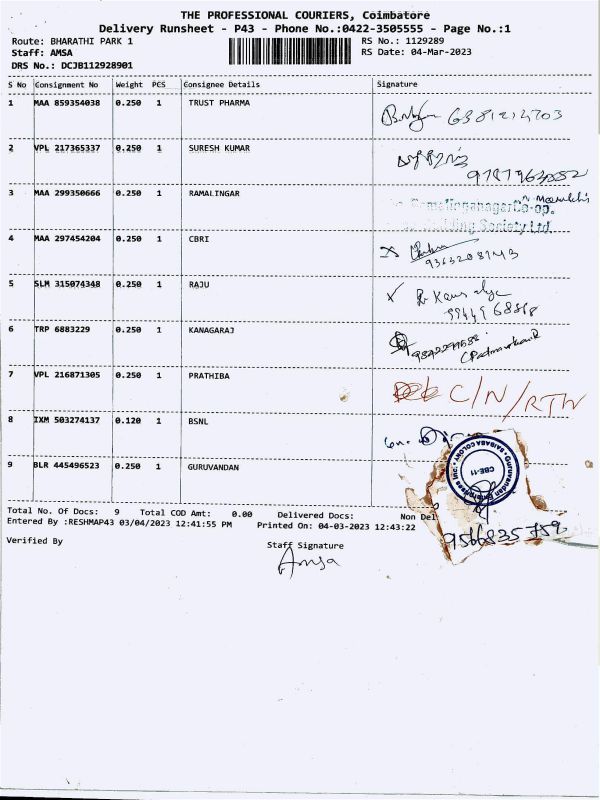 THE PROFESSIONAL COURIERS, Coimbatore
Delivery Runsheet - P43 - Phone No.:0422-3505555 - Page No.:1
Route: BHARATHI PARK 1 RS No.: 1129289
Staff: AMSA RS Date: 04-Mar-2023
DRS No.: DCJB112928901
S No Consignment No Weight PCS Consignee Details Signature
1 MAA 859354038 0.250 1 TRUST PHARMA
2 VPL 217365337 0.250 1 SURESH KUMAR
3 MAA 299350666 0.250 1 RAMALINGAR
Society Ltd
4 MAA 297454204 0.250 1 CBRI
9363208143
5 SLM 315074348 0.250 1 RAJU
6 TRP 6883229 0.250 1 KANAGARAJ
7 VPL 216871305 0.250 1 PRATHIBA C/N/RTN
8 IXM 503274137 0.120 1 BSNL
9 BLR 445496523 0.250 1 GURUVANDAN
Guruvandan Enterprises Inc. SAIBABA COLONY
CBE-11
Total No. Of Docs: 9 Total COD Amt: 0.00 Delivered Docs: Non Del
Entered By :RESHMAP43 03/04/2023 12:41:55 PM Printed On: 04-03-2023 12:43:22
9566835758
Verified By Staff Signature
Amsa